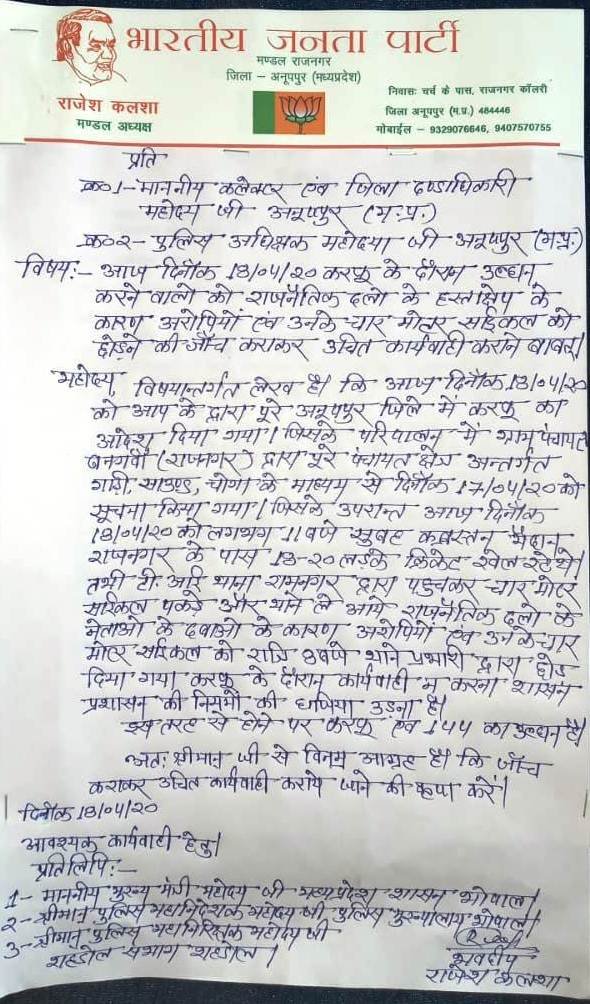 भारतीय जनता पार्टी
मण्डल राजनगर
जिला – अनूपपुर (मध्यप्रदेश)
राजेश कलशा
मण्डल अध्यक्ष
निवासः चर्च के पास, राजनगर कॉलरी
जिला अनूपपुर (म.प्र.) 484446
मोबाईल - 9329076646, 9407570755
प्रति
क्र०1- माननीय कलेक्टर एवं जिला दण्डाधिकारी
महोदय जी अनूपपुर (म.प्र.)
क्र०२- पुलिस अधिक्षक महोदया जी अनूपपुर (म.प्र.)
विषय:- आज दिनाँक 18/04/20 करफू के दौरान उल्घन
करने वालो को राजनैतिक दलो के हस्तक्षेप के
कारण अरोपियों एंव उनके चार मोटर साईकल को
छोडने की जाँच कराकर उचित कार्यवाही कराने बावत्।
महोदय, विषयान्तर्गत लेख है। कि आज दिनाँक 18/04/20
को आप के द्वारा पूरे अनूपपुर जिले में करफू का
आदेश दिया गया। जिसके परिपालन में ग्राम पंचायत
बनगवाँ (राजनगर) द्वारा पूरे पंचायत क्षेत्र अन्तर्गत
गाडी, साउण्ड, चोंगा के माध्यम से दिनाँक 17/04/20 को
सूचना किया गया। जिसके उपरान्त आज दिनाँक
18/04/20 को लगभग 11 वजे सुबह कब्रस्तन मैदान
राजनगर के पास 18-20 लडके क्रिकेट खेल रहे थे।
तभी टी. आई थाना रामनगर द्वारा पहुचकर चार मोटर
साईकल पकडे और थाने ले आये राजनैतिक दलो के
नेताओ के दवाओ के कारण अरोपियों एंव उनके चार
मोटर साईकल को रात्रि 8 वजे थाने प्रभारी द्वारा छोड
दिया गया करफू के दौरान कार्यवाही न करना शासन
प्रशासन की नियमो की धज्जिया उडना है।
इस तरह से होने पर करफू एंव 144 का उल्घन है।
अतः श्रीमान जी से विनम्र आग्रह है। कि जाँच
कराकर उचित कार्यवाही कराये जाने की कृपा करें।
दिनाँक 18/04/20
आवश्यक कार्यवाही हेतु।
प्रतिलिपि:-
1- माननीय मुख्य मंत्री महोदय जी मध्यप्रदेश शासन भोपाल।
2- श्रीमान पुलिस महानिदेशक महोदय जी पुलिस मुख्यालय भोपाल।
3- श्रीमान पुलिस महानिरिक्षक महोदय जी
शहडोल संभाग शहडोल।
भवदीय
राजेश कलशा